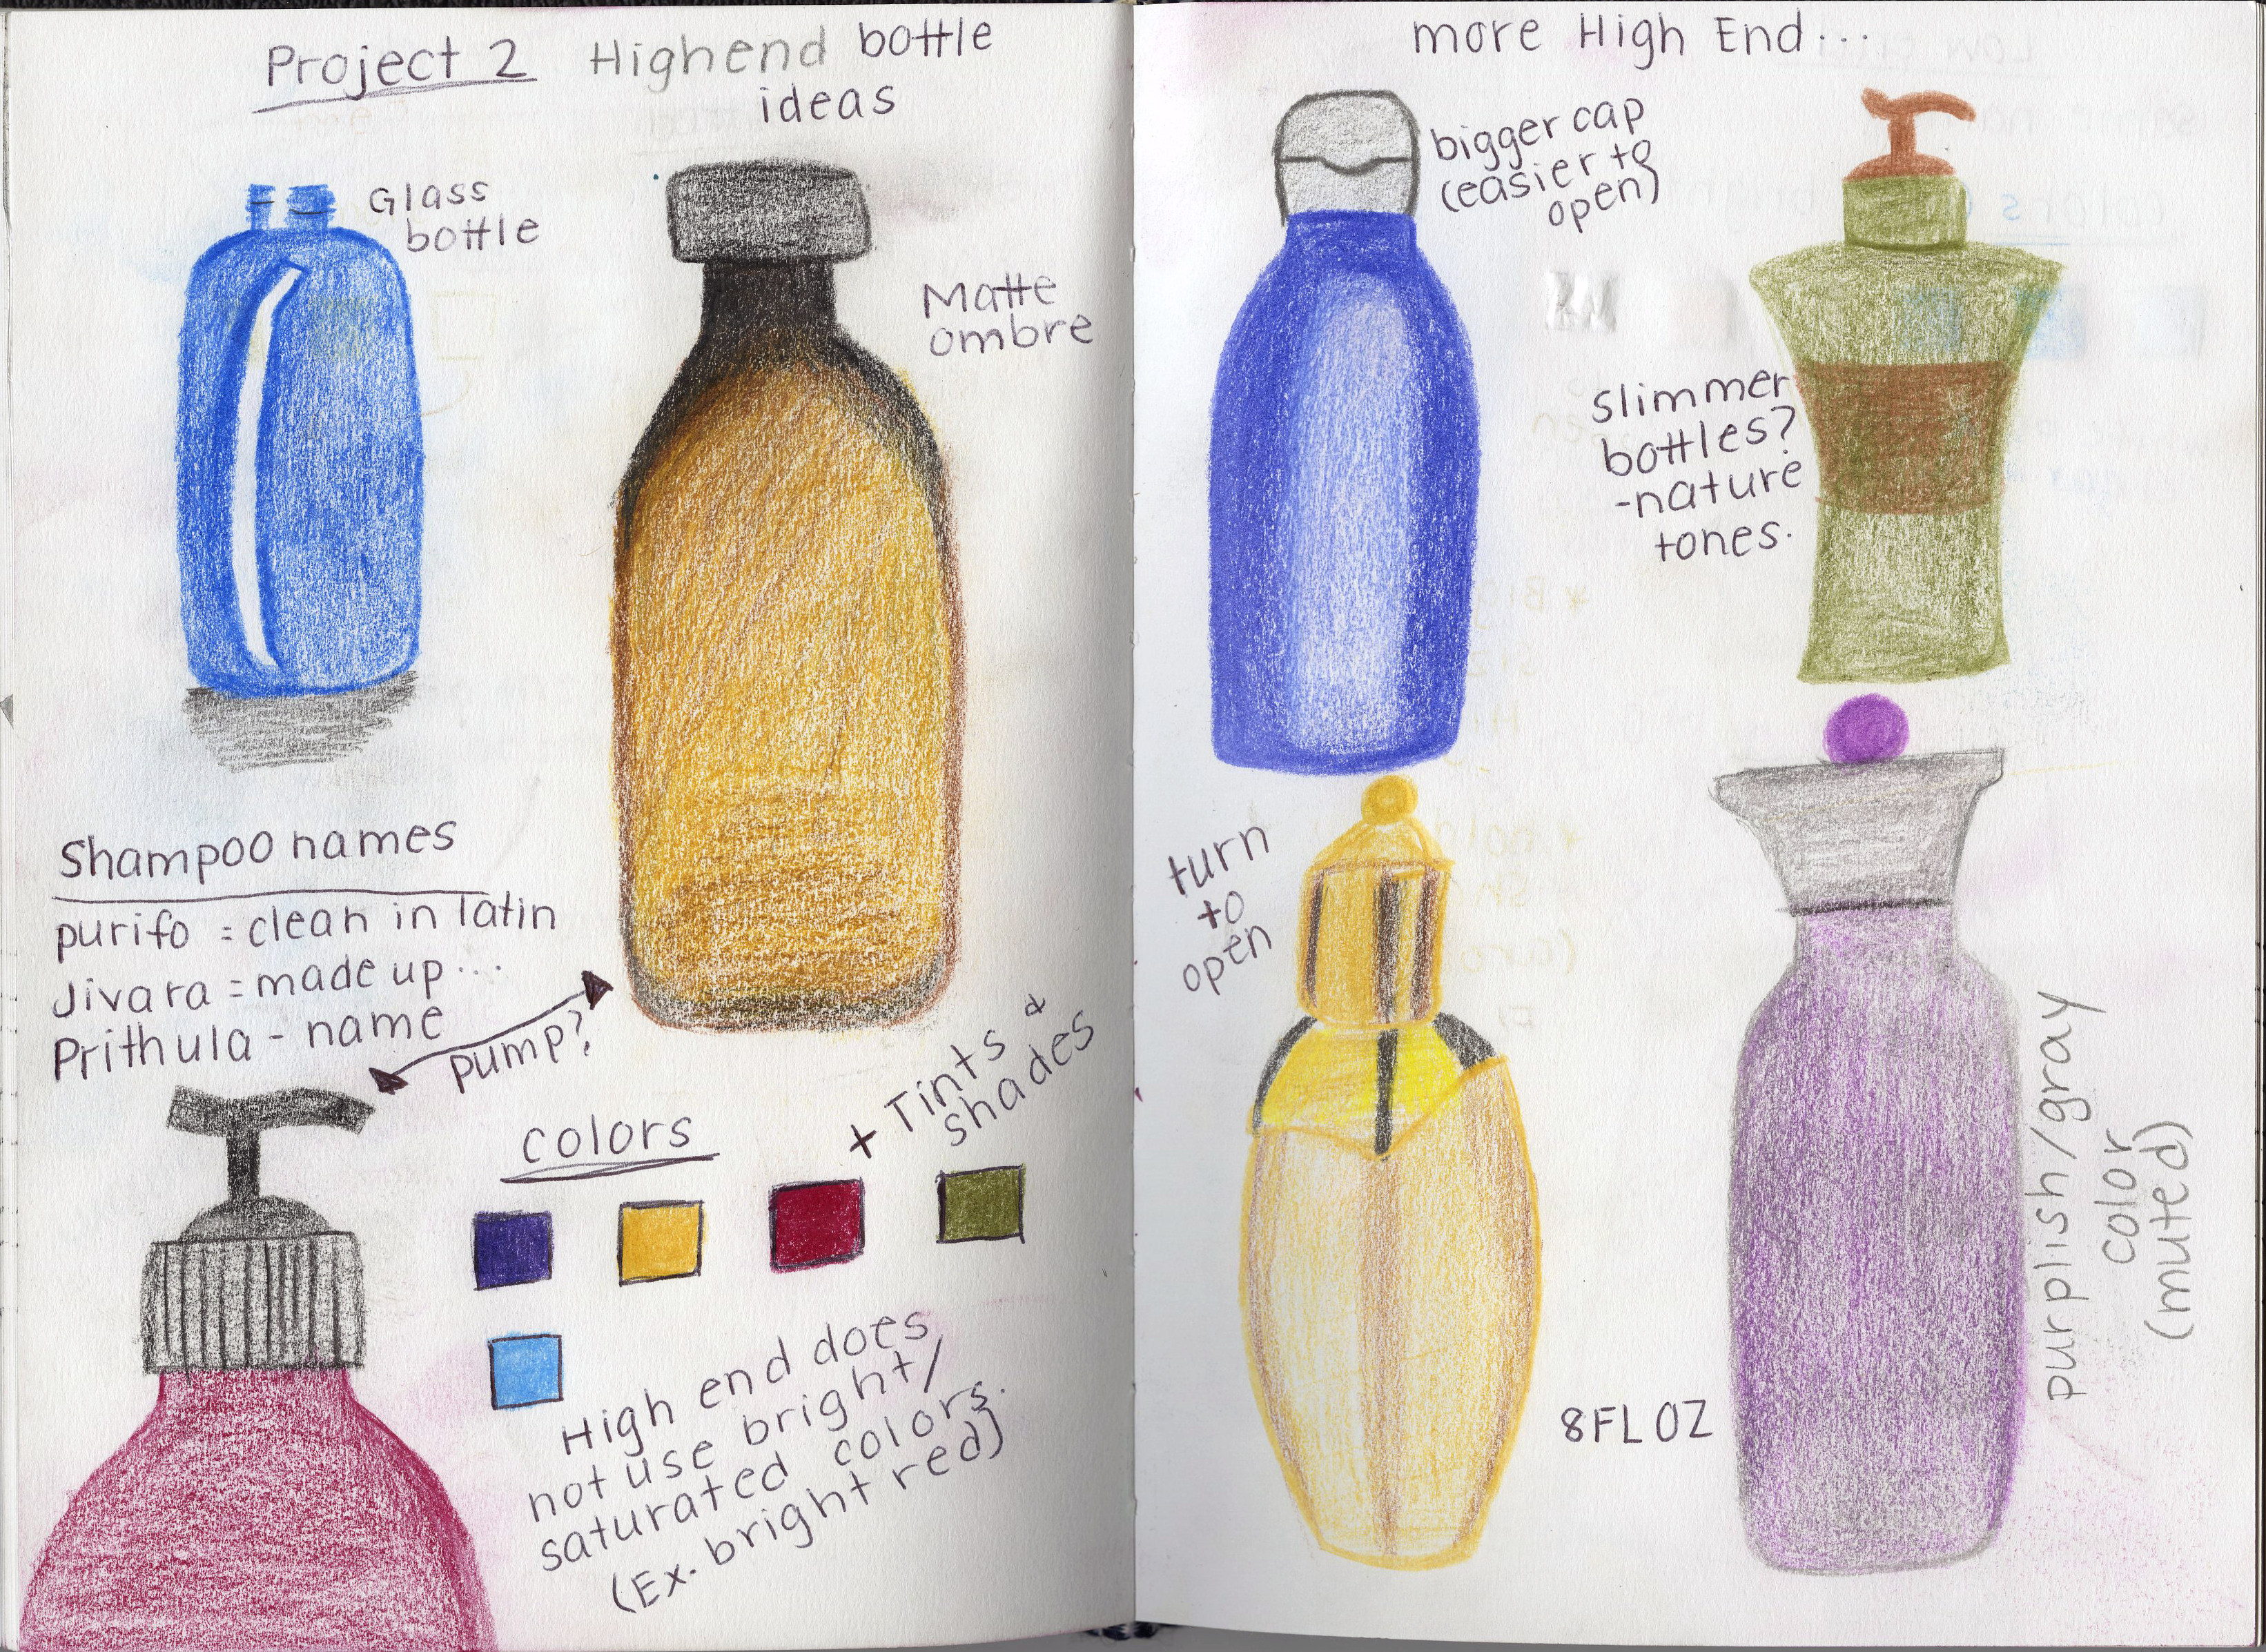 Project 2 Highend bottle
ideas
Glass
bottle
Matte
ombre
Shampoo names
purifo = clean in latin
Jivara = made up...
Prithula - name
pump?
colors
+ Tints &
shades
High end does
not use bright/
saturated colors.
(Ex. bright red)
more High End...
bigger cap
(easier to
open)
slimmer
bottles?
-nature
tones.
turn
to
open
8FLOZ
purplish/gray
color
(muted)